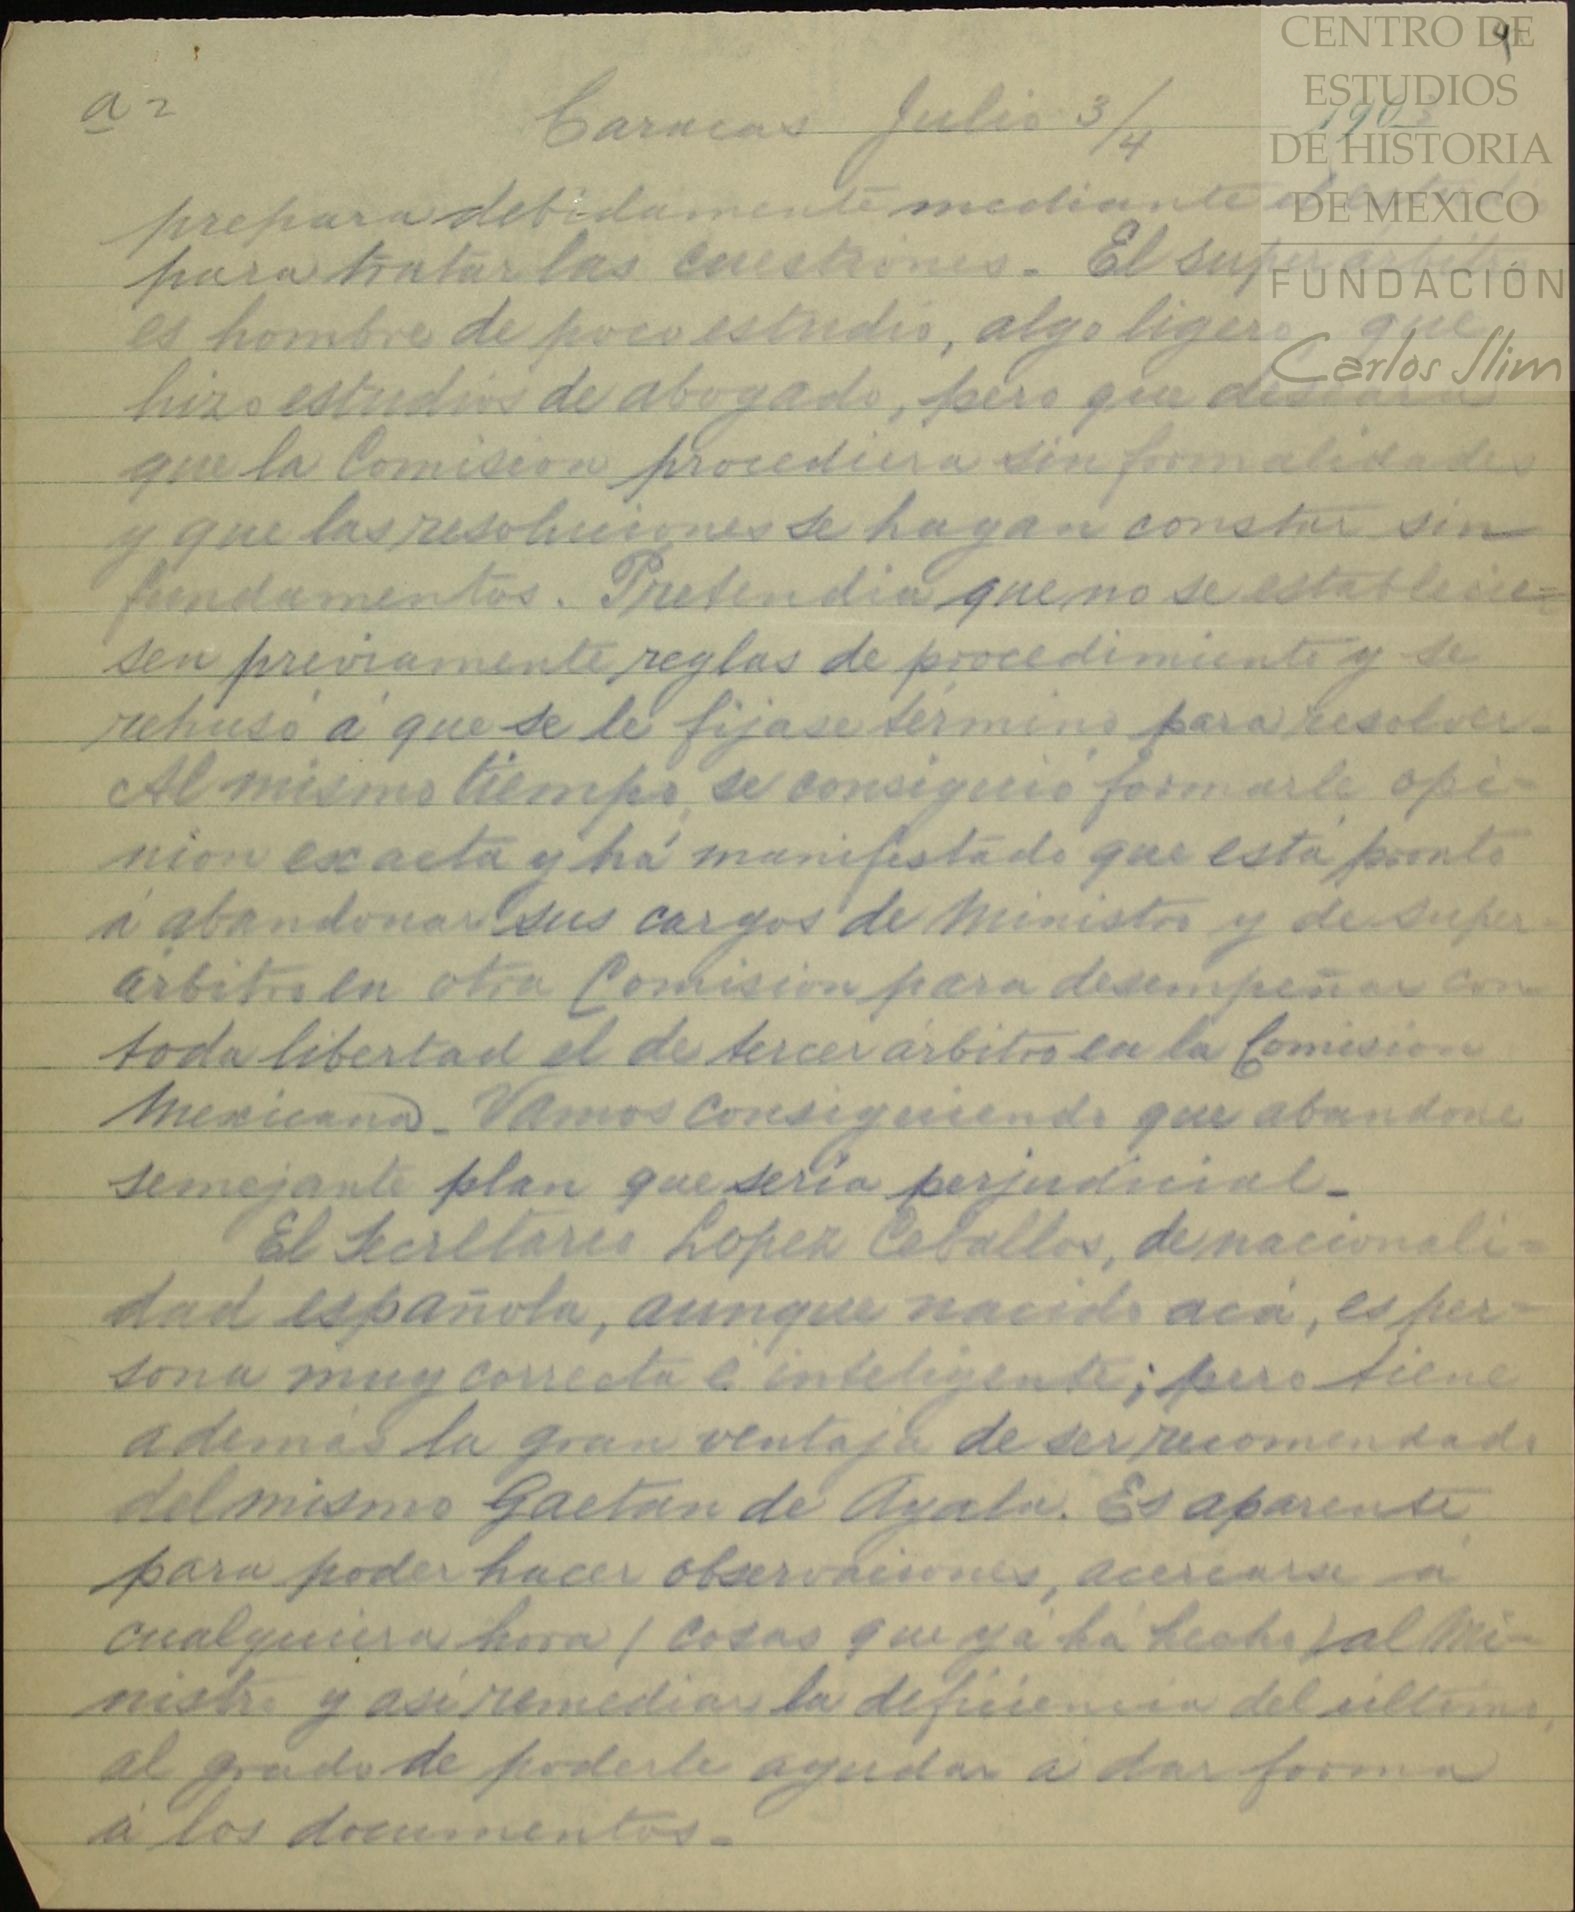 a 2
4
Caracas Julio 3/4
190
prepara debidamente mediante el
para tratar las cuestiones. El super árbitro
es hombre de poco estudio, algo ligero, que
hizo estudios de abogado, pero que deseara
que la Comision procediera sin formalidades
y que las resoluciones se hagan constar sin
fundamentos. Pretendia que no se establecie=
sen previamente reglas de procedimiento y se
rehusó á que se le fijase término para resolver.
Al mismo tiempo se consiguió formarle opi=
nion exacta y há manifestado que está pronto
á abandonar sus cargos de Ministro y de super-
árbitro en otra Comision para desempeñar con
toda libertad el de tercer árbitro en la Comision
Mexicana. Vamos consiguiendo que abandone
semejante plan que sería perjudicial.
El Secretario Lopez Ceballos, de nacionali=
dad española, aunque nacido acá, es per=
sona muy correcta é inteligente; pero tiene
además la gran ventaja de ser recomendado
del mismo Gaetan de Ayala. Es aparente
para poder hacer observaciones, acercarse á
cualquiera hora (cosas que yá há hecho) al Mi=
nistro y así remediar la deficiencia del último,
al grado de poderle ayudar á dar forma
á los documentos.
CENTRO DE
ESTUDIOS
DE HISTORIA
DE MEXICO
FUNDACIÓN
Carlos Slim